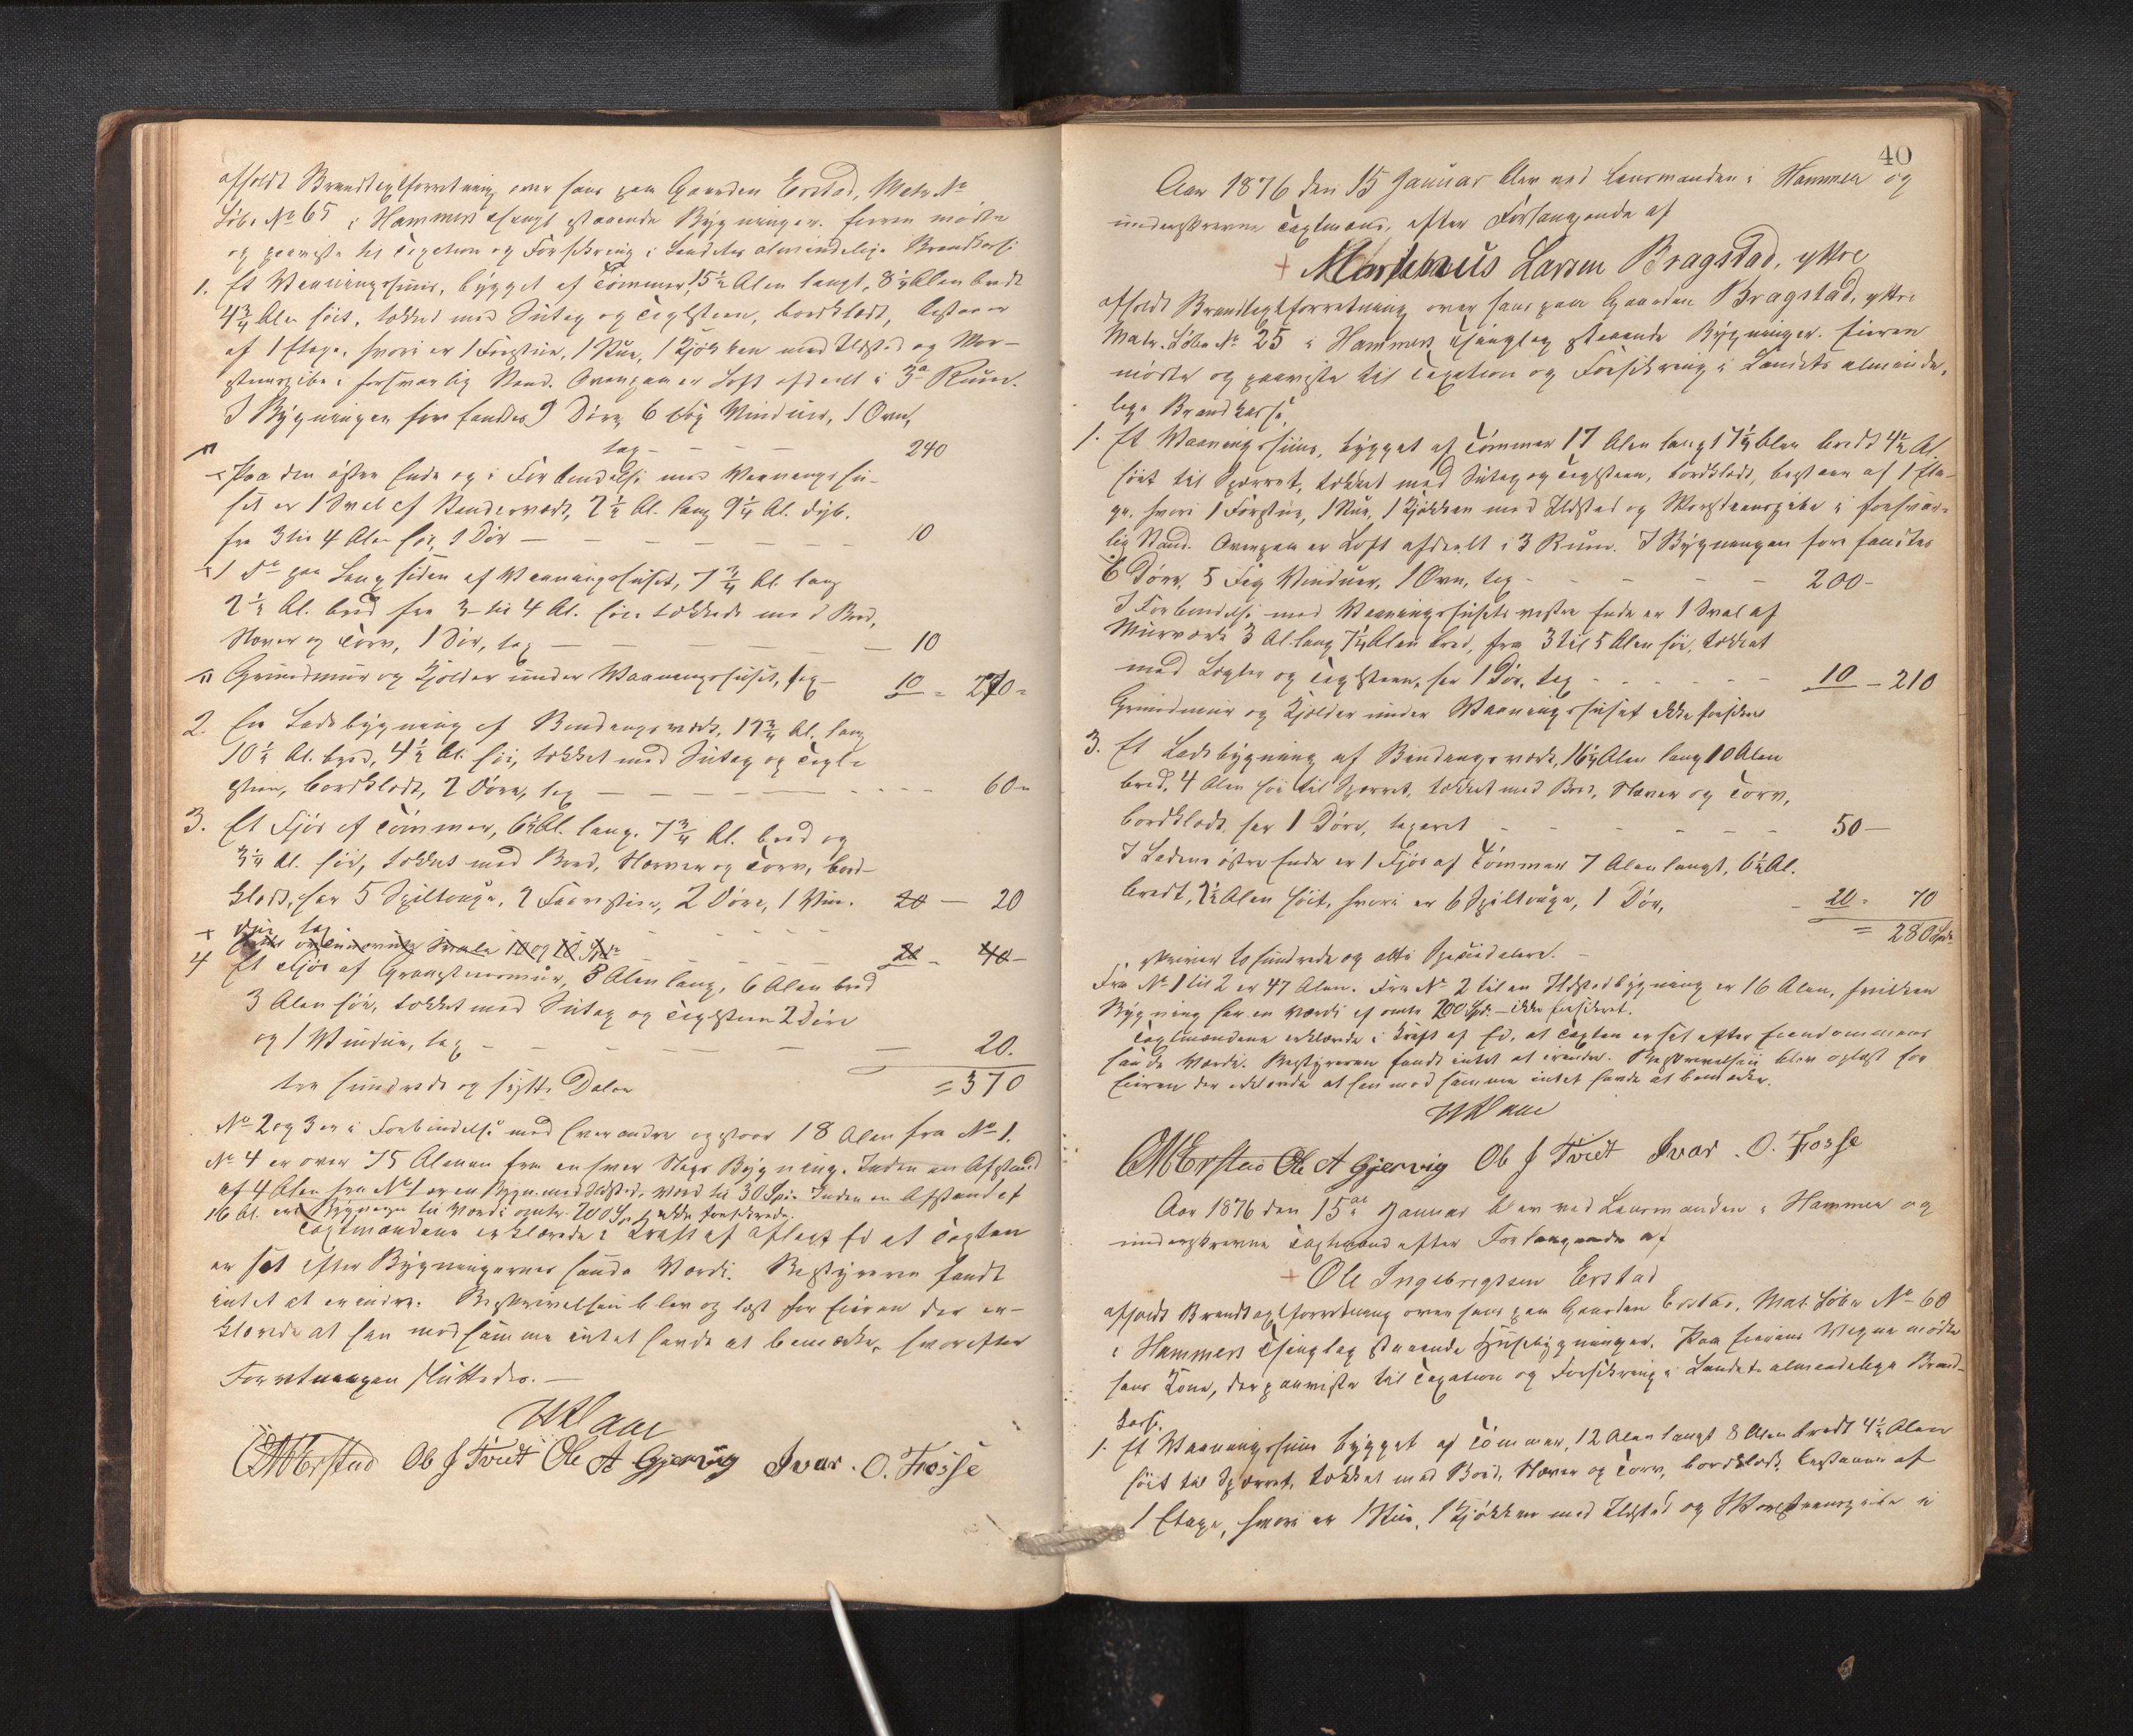 afholdt Brandtaxtforretning over hans paa Gaarden Erstad, Matr. No
Løbe No 65 i Hammers thingl. staaende Bygninger. Eieren mødte
og paaviste til Taxation og Forsikring i Landets almindelige Brandkasse
1. Et Vaaningshuus, bygget af Tømmer, 15½ Alen langt, 8¼ Alen bredt
4¾ Alen høit, tækket med Sutag og Teglsteen, bordklædt, bestaaer
af 1 Etage, hvori er 1 Forstue, 1 Stue, 1 Kjøkken med Ildsted og Mur-
steenspibe i forsvarlig Stand. Ovenpaa er Loft afdeelt i 3 Rum.
I Bygningen forefandtes 9 Døre, 6 Fag Vinduer, 1 Ovn,
tax — — — 240
Paa den østre Ende og i Forbindelse med Vaaningshu-
set er 1 Sval af Stenderværk, 2½ Al. lang 9¼ Al. dyb.
fra 3 til 4 Alen høi, 1 Dør — 10
1 do paa Langsiden af Vaaningshuset, 7¾ Al. lang
2½ Al. bred fra 3 til 4 Al. høi tækkede med Bord,
Næver og Torv, 1 Dør, tax — 10
Grundmuur og Kjelder under Vaaningshuset, tax — 10 = 270 =
2. En Ladebygning af Bindingsværk, 19¾ Al. lang
10½ Al. bred, 4½ Al. høi, tækket med Sutag og Tegl=
steen, bordklædt, 2 Døre, tax — 60 =
3. Et Fjøs af Tømmer, 6½ Al. lang, 7¾ Al. bred og
3¼ Al. høi, tækket med Bord, Næver og Torv, bord-
klædt, har 5 Spiltouge, 2 Døre, 1 Vin- 20 — 20
due, tax
4 Et Fjøs af Graasteensmuur, 8 Alen lang, 6 Alen bred
3 Alen høi, tækket med Sutag og Teglsteen 2 Døre
og 1 Vindue, tax — 20.
tre hundrede og sytti Daler = 370
No 2 og 3 er i Forbindelse med hverandre og staar 18 Alen fra No 1.
No 4 er over 75 Alen fra enhver Slags Bygning. Inden en Afstand
af 4 Alen fra No 1 er en Bygn. med Ildsted, Værd til 30 Spd. Inden en Afstand af
16 Al. er Bygninger til Værdi omtr. 200 Spd ikke forsikrede.
Taxtmændene erklærede i Kraft af aflagt Ed at Taxten
er sat efter Bygningernes sande Værdi. Bestyreren fandt
intet at erindre. Beskrivelsen blev oplæst for Eieren der er-
klærede at han mod samme intet havde at bemærke, hvorefter
Forretningen sluttedes. —
Ob J Tvedt Ole A Gjervig Ivar. O. Fosse
40
Aar 1876 den 15 Januar blev ved Lensmanden i Hammer og
underskrevne Taxtmænd, efter Forlangende af
+ Martinus Larsen Bragstad, yttre
afholdt Brandtaxtforretning over hans paa Gaarden Bragstad, yttre
Matr. Løbe No 25 i Hammers Thinglag staaende Bygninger. Eieren
mødte og paaviste til Taxation og Forsikring i Landets alminde-
lige Brandkasse,
1. Et Vaaningshuus, bygget af Tømmer 17 Alen langt 7½ Alen bredt 4½ Al.
høit til Sparret, tækket med Sutag og Teglsteen, bordklædt, bestaaer af 1 Eta-
ge, hvori 1 Forstue, 1 Stue, 1 Kjøkken med Ildsted og Muursteenspibe i forsvar-
lig Stand. Ovenpaa er Loft afdeelt i 3 Rum. I Bygningen forefandtes
6 Døre, 5 Fag Vinduer, 1 Ovn, tax — 200 -
I Forbindelse med Vaaningshusets vestre Ende er 1 Sval af
Muurværk 3 Al. lang 7¼ Alen bred, fra 3 til 5 Alen høi, tækket
med Lægter og Teglsteen, har 1 Dør, tax — 10 — 210
Grundmuur og Kjelder under Vaaningshuset ikke forsikret
3. Et Ladebygning af Bindingsværk, 16¼ Alen lang 10 Alen
bred, 4 Alen høi til Sparret, tækket med Bord, Næver og Torv,
bordklædt, har 1 Døre, taxeret — 50 —
I Ladens østre Ende er 1 Fjøs af Tømmer 7 Alen langt, 6½ Al.
bredt, 3½ Alen høit, hvori er 6 Spiltouge, 1 Dør, — 20 = 70
= 280 Spd.
skriver to hundrede og otti Speciedaler. —
Fra No 1 til 2 er 47 Alen. Fra No 2 til en Ildstedbygning er 16 Alen, hvilken
Bygning har en Værdi af omtr 200 Spd. — ikke forsikret.
Taxtmændene erklærede i Kraft af Ed, at Taxten er sat efter Eiendommens
sande Værdi. Bestyreren fandt intet at erindre. Beskrivelsen blev oplæst for
Eieren der erklærede at han mod samme intet havde at bemærke.
Ole A Gjervig Ob J Tvedt Ivar. O. Fosse
Aar 1876 den 15de Januar blev ved Lensmanden i Hammer og
underskrevne Taxtmænd efter Forlangende af
+ Ole Ingebrigtsen Erstad
afholdt Brandtaxtforretning over hans paa Gaarden Erstad, Mat. Løbe No 60
i Hammers Thinglag staaende Huusebygninger. Paa Eierens Vegne mødte
hans Kone, der paaviste til Taxation og Forsikring i Landets almindelige Brand-
kasse.
1. Et Vaaningshuus bygget af Tømmer, 12 Alen langt 8 Alen bredt 4½ Alen
høit til Sparret, tækket med Bord, Næver og Torv, bordklædt, bestaaer af
1 Etage, hvori er 1 Stue, 1 Kjøkken med Ildsted og Muursteenspibe i